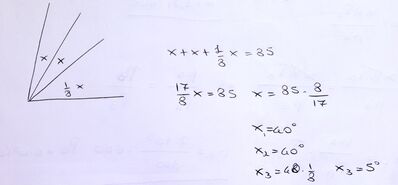 x x
1/8 x
x + x + 1/8 x = 85
17/8 x = 85 x = 85 · 8/17
x₁ = 40°
x₂ = 40°
x₃ = 40 · 1/8 x₃ = 5°